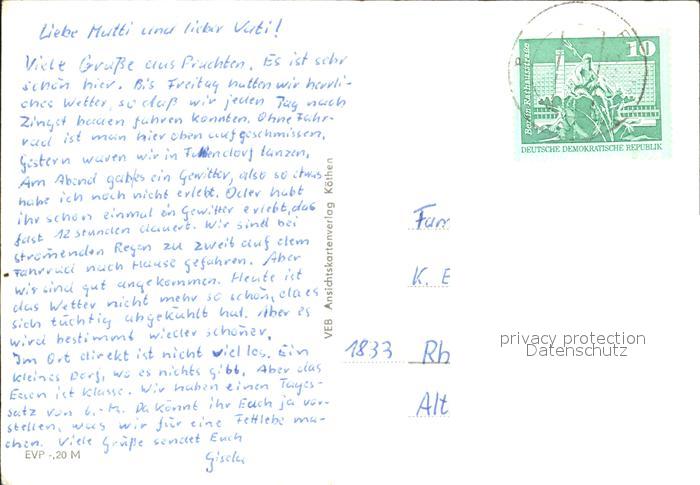 Liebe Mutti und lieber Vati!
Viele Grüße aus Pruchten. Es ist sehr
schön hier. Bis Freitag hatten wir herrli-
ches Wetter, so daß wir jeden Tag nach
Zingst baden fahren konnten. Ohne Fahr-
rad ist man hier oben aufgeschmissen.
Gestern waren wir in tanzen.
Am Abend gab es ein Gewitter, also so etwas
habe ich noch nicht erlebt. Oder habt
ihr schon einmal ein Gewitter erlebt, das
fast 12 stunden dauert. Wir sind bei
strömenden Regen zu zweit auf dem
Fahrrad nach Hause gefahren. Aber
wir sind gut angekommen. Heute ist
das Wetter nicht mehr so schön, da es
sich tüchtig abgekühlt hat. Aber es
wird bestimmt wieder schöner.
Im Ort direkt ist nicht viel los. Ein
kleines Dorf, wo es nichts gibt. Aber das
Essen ist Klasse. Wir haben einen Tages-
satz von 6,-M. Da könnt ihr Euch ja vor-
stellen, was wir für eine Fettlebe ma-
chen. Viele Grüße sendet Euch
Gisela
EVP -,20 M
VEB Ansichtskartenverlag Köthen
10
Berlin, Rathausstraße
DEUTSCHE DEMOKRATISCHE REPUBLIK
Fam
K. E
1833 Rh
Alt
privacy protection
Datenschutz